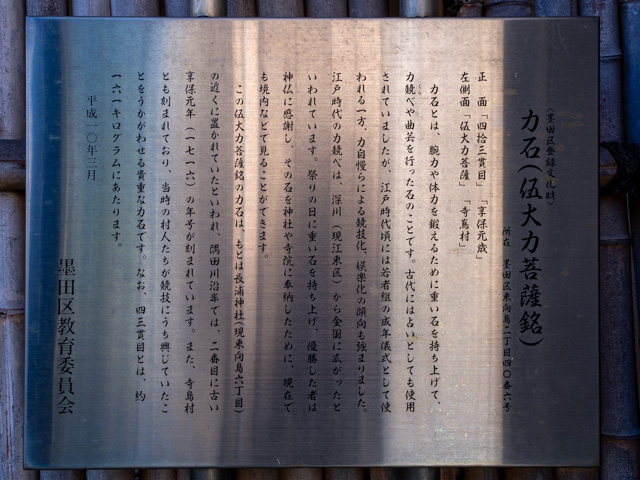 (墨田区登録文化財)
力石(伍大力菩薩銘)
所在 墨田区東向島二丁目四〇番六号
正 面「四拾三貫目」 「享保元歳」
左側面「伍大力菩薩」 「寺嶌村」
力石とは、腕力や体力を鍛えるために重い石を持ち上げて、
力競べや曲芸を行った石のことです。古代には占いとしても使用
されていましたが、江戸時代頃には若者組の成年儀式として使
われる一方、力自慢らによる競技化、娯楽化の傾向も強まりました。
江戸時代の力競べは、深川(現江東区)から全国に広がったと
いわれています。祭りの日に重い石を持ち上げ、優勝した者は
神仏に感謝し、その石を神社や寺院に奉納したために、現在で
も境内などで見ることができます。
この伍大力菩薩銘の力石は、もとは長浦神社(現東向島六丁目)
の近くに置かれていたといわれ、隅田川沿岸では、二番目に古い
享保元年(一七一六)の年号が刻まれています。また、寺島村
とも刻まれており、当時の村人たちが競技にうち興じていたこ
とをうかがわせる貴重な力石です。なお、四三貫目とは、約
一六一キログラムにあたります。
平成一〇年三月
墨田区教育委員会